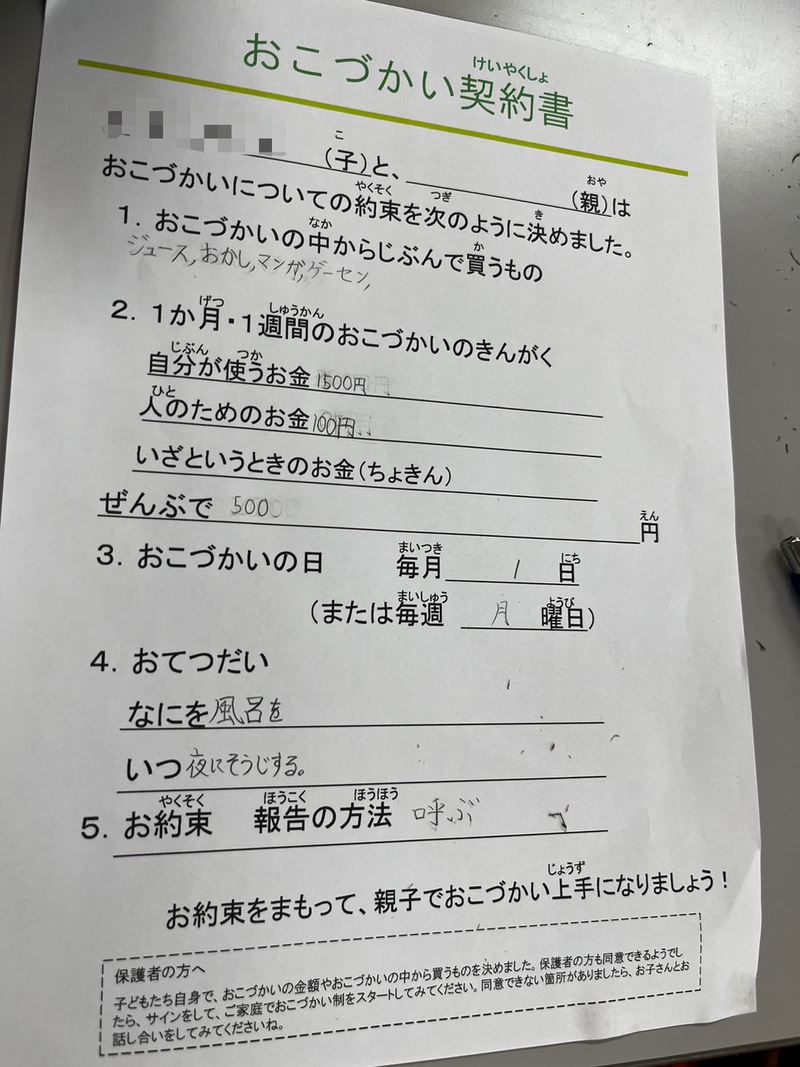 おこづかい契約書
けいやくしょ
(子)と、 (親)は
こ おや
おこづかいについての約束を次のように決めました。
やくそく つぎ き
1. おこづかいの中からじぶんで買うもの
なか か
ジュース,おかし,マンガ,ゲーセン,
2. 1か月・1週間のおこづかいのきんがく
げつ しゅうかん
自分が使うお金 1500円
じぶん つか
人のためのお金 100円
ひと
いざというときのお金(ちょきん)
ぜんぶで 5000 円
えん
3. おこづかいの日 毎月 1 日
まいつき にち
(または毎週 月 曜日)
まいしゅう ようび
4. おてつだい
なにを 風呂を
いつ 夜にそうじする。
5. お約束 報告の方法 呼ぶ
やくそく ほうこく ほうほう
お約束をまもって、親子でおこづかい上手になりましょう!
じょうず
保護者の方へ
子どもたち自身で、おこづかいの金額やおこづかいの中から買うものを決めました。保護者の方も同意できるようでし
たら、サインをして、ご家庭でおこづかい制をスタートしてみてください。同意できない箇所がありましたら、お子さんとお
話し合いをしてみてくださいね。